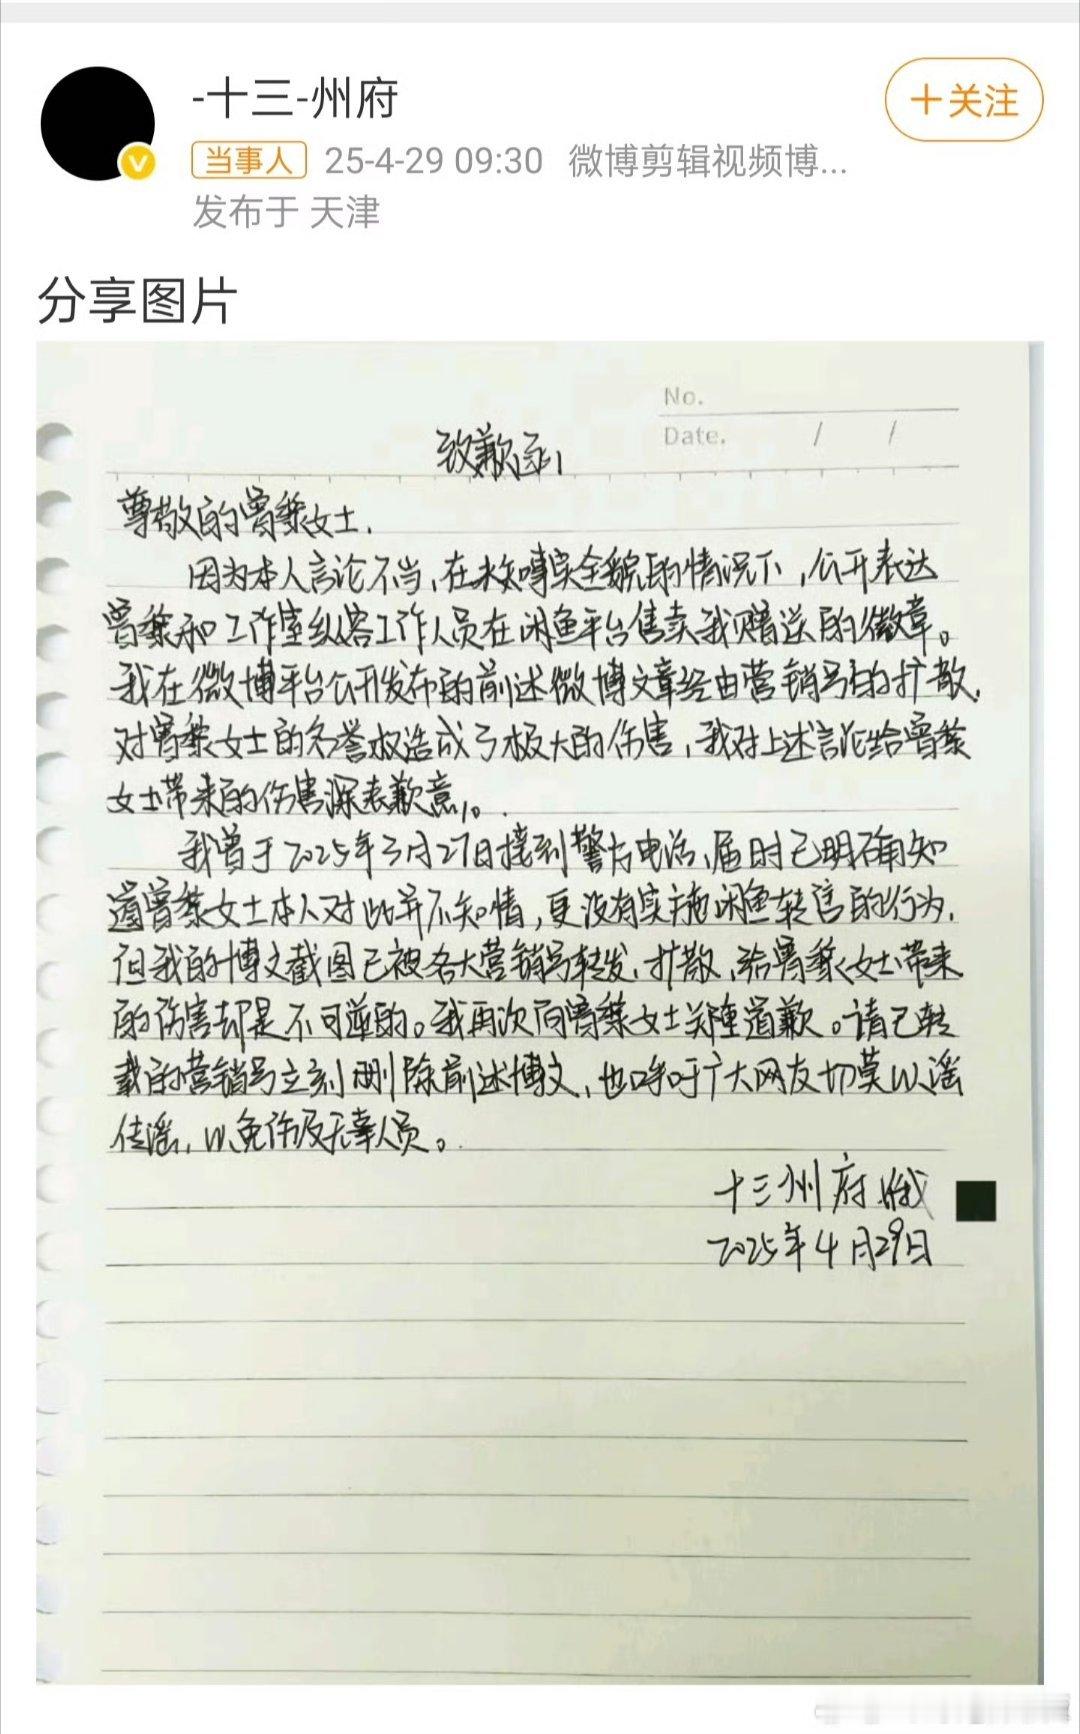 -十三-州府
+关注
当事人 25-4-29 09:30 微博剪辑视频博...
发布于 天津
分享图片
No.
Date. / /
致歉函
尊敬的曾黎女士.
因为本人言论不当,在未知事实全貌的情况下,公开表达
曾黎和工作室纵容工作人员在闲鱼平台售卖我赠送的徽章。
我在微博平台公开发布的前述微博文章经由营销号的扩散,
对曾黎女士的名誉权造成了极大的伤害,我对上述言论给曾黎
女士带来的伤害深表歉意。
我曾于2025年3月27日接到警方电话,届时已明确知
道曾黎女士本人对此并不知情,更没有实施闲鱼转售的行为,
但我的博文截图已被各大营销号转发,扩散,给曾黎女士带来
的伤害却是不可逆的。我再次向曾黎女士郑重道歉。请已转
载的营销号立刻删除前述博文,也呼吁广大网友切莫以谣
传谣,以免伤及无辜人员。
十三州府
2025年4月29日